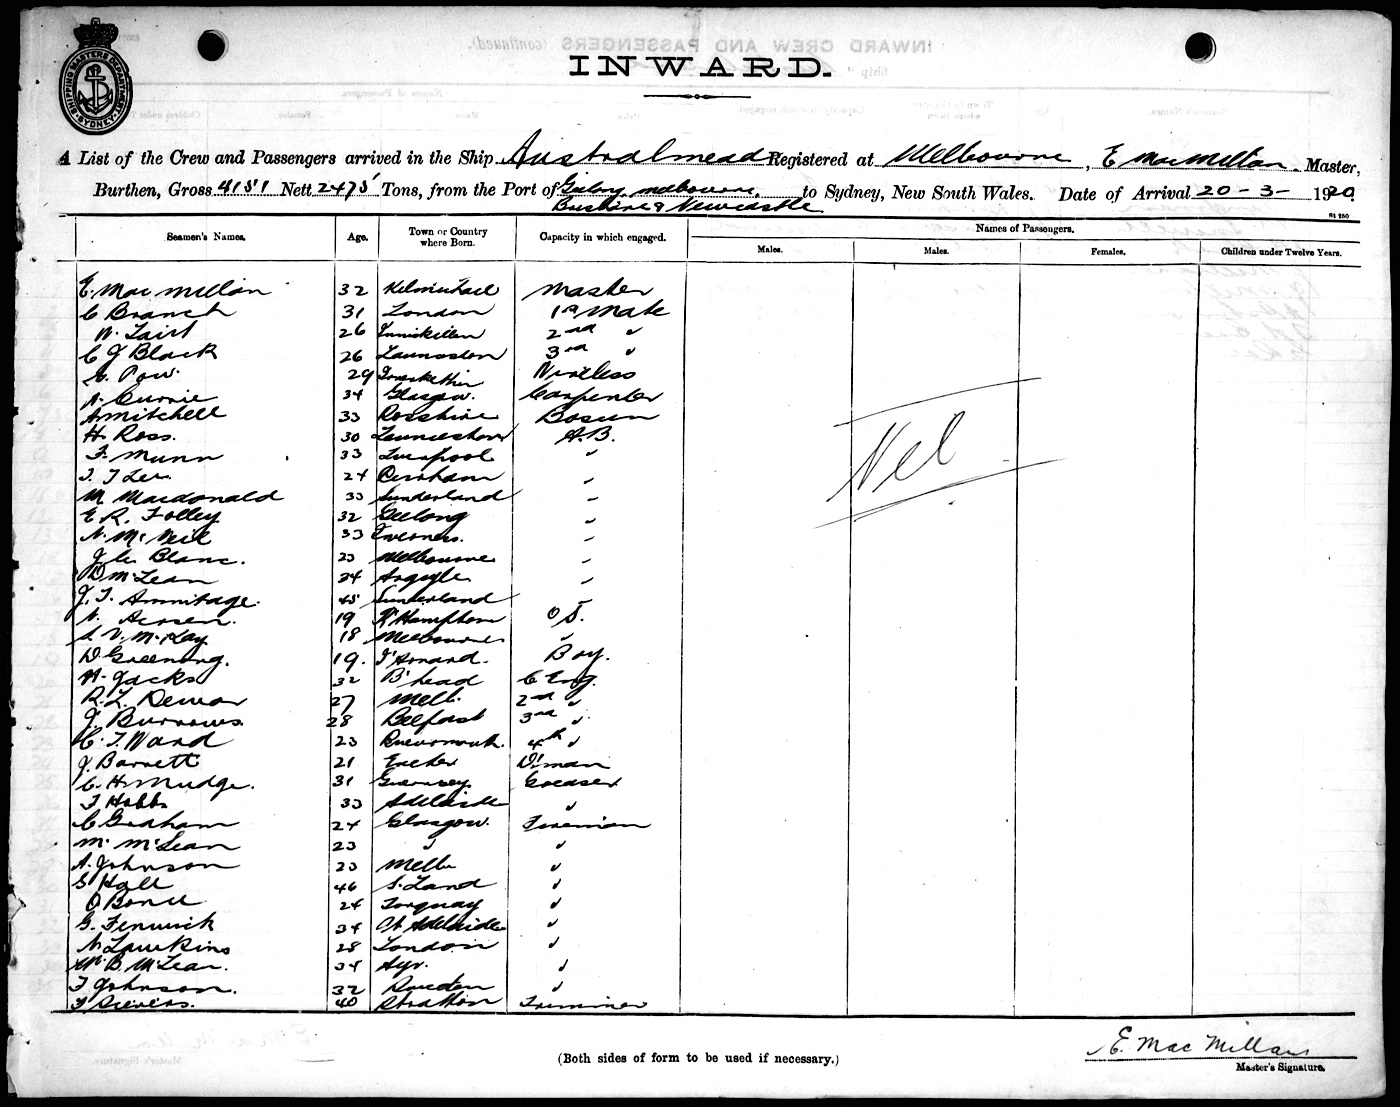 SHIPPING MASTERS DEPARTMENT SYDNEY
INWARD.
A List of the Crew and Passengers arrived in the Ship Australmead Registered at Melbourne, E MacMillan, Master,
Burthen, Gross 4151 Nett 2475 Tons, from the Port of Melbourne, to Sydney, New South Wales. Date of Arrival 20-3-1920.
Brisbane & Newcastle
Seamen's Names. Age. Town or Country where Born. Capacity in which engaged. Names of Passengers.
Males. Males. Females. Children under Twelve Years.
E. MacMillan 32 Master
C Branch 31 London 1st Mate
W. 26 Inniskillen 2nd "
C J Black 26 Launceston 3rd "
Pow. 29 Wireless
A. Currie 34 Glasgow. Carpenter
A Mitchell 33 Rosshire Bosun
H. Ross. 30 A.B.
F. Munn 33 Liverpool "
J. J Lee 24 Durham "
M Macdonald 33 Sunderland "
E R. Folley 32 Geelong "
N. McNeil 33 Inverness. "
J Le Blanc. 23 Melbourne "
D McLean 34 Argyle "
J. T. Armitage. 45 Sunderland "
19 N'Hampton O.S.
S. V. McKay 18 Melbourne "
D Greening. 19. St Arnard. Boy.
W. Jacks 32 B'head C Eng.
R. L. 27 Melb. 2nd "
J. Burrows 28 Belfast 3rd "
C. T. Ward 23 4th "
J. Barrett 21 Exeter D'man
C. H. Mudge. 31 Guernsey Greaser
T Hobbs 33 Adelaide "
C Graham 24 Glasgow. Fireman
M. McLean 23 " "
A. Johnson 23 Melb "
S Hall 46 S. Land "
24 Torquay "
G. Fenwick 34 Pt Adelaide "
28 London "
Wm B. McLean. 34 Ayr. "
F Johnson. 32 Sweden "
40 Stratton Trimmer
Nil
E. MacMillan
(Both sides of form to be used if necessary.)
Master's Signature.